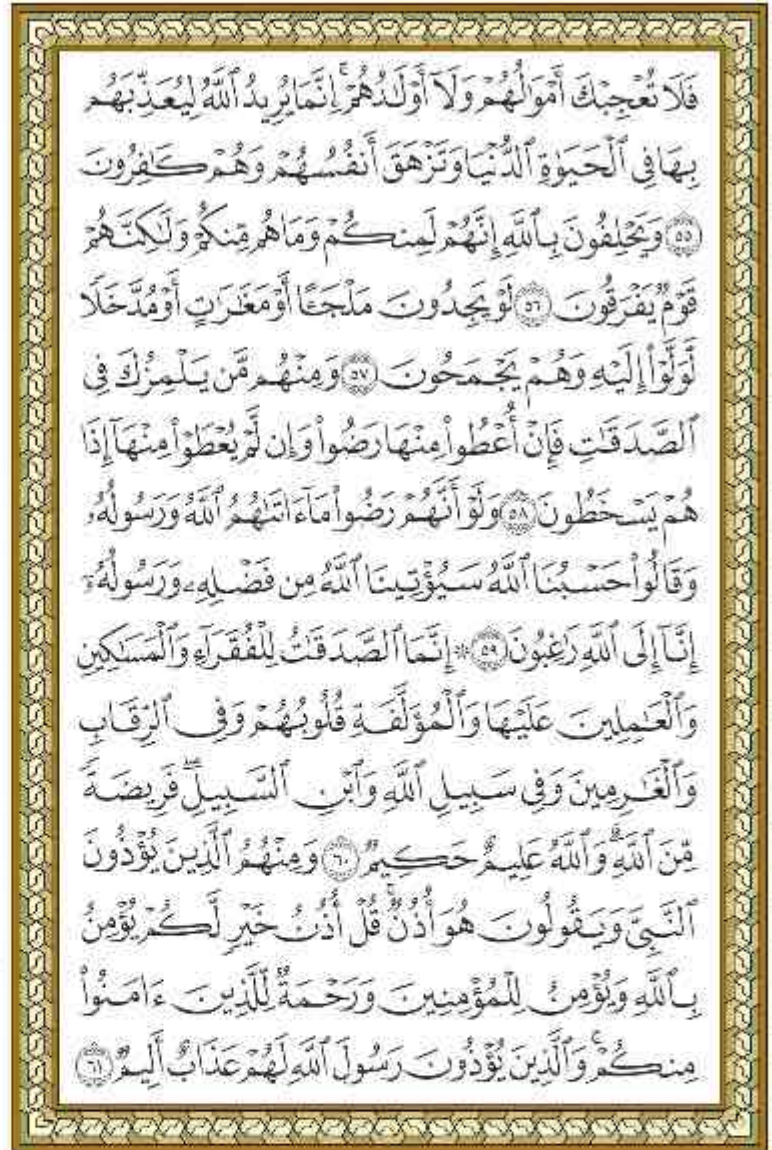 فَلَا تُعْجِبْكَ أَمْوَٰلُهُمْ وَلَآ أَوْلَـٰدُهُمْ ۚ إِنَّمَا يُرِيدُ ٱللَّهُ لِيُعَذِّبَهُم
بِهَا فِى ٱلْحَيَوٰةِ ٱلدُّنْيَا وَتَزْهَقَ أَنفُسُهُمْ وَهُمْ كَـٰفِرُونَ
٥٥ وَيَحْلِفُونَ بِٱللَّهِ إِنَّهُمْ لَمِنكُمْ وَمَا هُم مِّنكُمْ وَلَـٰكِنَّهُمْ
قَوْمٌ يَفْرَقُونَ ٥٦ لَوْ يَجِدُونَ مَلْجَـًٔا أَوْ مَغَـٰرَٰتٍ أَوْ مُدَّخَلًا
لَّوَلَّوْا۟ إِلَيْهِ وَهُمْ يَجْمَحُونَ ٥٧ وَمِنْهُم مَّن يَلْمِزُكَ فِى
ٱلصَّدَقَـٰتِ فَإِنْ أُعْطُوا۟ مِنْهَا رَضُوا۟ وَإِن لَّمْ يُعْطَوْا۟ مِنْهَآ إِذَا
هُمْ يَسْخَطُونَ ٥٨ وَلَوْ أَنَّهُمْ رَضُوا۟ مَآ ءَاتَىٰهُمُ ٱللَّهُ وَرَسُولُهُۥ
وَقَالُوا۟ حَسْبُنَا ٱللَّهُ سَيُؤْتِينَا ٱللَّهُ مِن فَضْلِهِۦ وَرَسُولُهُۥٓ
إِنَّآ إِلَى ٱللَّهِ رَٰغِبُونَ ٥٩ ۞ إِنَّمَا ٱلصَّدَقَـٰتُ لِلْفُقَرَآءِ وَٱلْمَسَـٰكِينِ
وَٱلْعَـٰمِلِينَ عَلَيْهَا وَٱلْمُؤَلَّفَةِ قُلُوبُهُمْ وَفِى ٱلرِّقَابِ
وَٱلْغَـٰرِمِينَ وَفِى سَبِيلِ ٱللَّهِ وَٱبْنِ ٱلسَّبِيلِ ۖ فَرِيضَةً
مِّنَ ٱللَّهِ ۗ وَٱللَّهُ عَلِيمٌ حَكِيمٌ ٦٠ وَمِنْهُمُ ٱلَّذِينَ يُؤْذُونَ
ٱلنَّبِىَّ وَيَقُولُونَ هُوَ أُذُنٌ ۚ قُلْ أُذُنُ خَيْرٍ لَّكُمْ يُؤْمِنُ
بِٱللَّهِ وَيُؤْمِنُ لِلْمُؤْمِنِينَ وَرَحْمَةٌ لِّلَّذِينَ ءَامَنُوا۟
مِنكُمْ ۚ وَٱلَّذِينَ يُؤْذُونَ رَسُولَ ٱللَّهِ لَهُمْ عَذَابٌ أَلِيمٌ ٦١